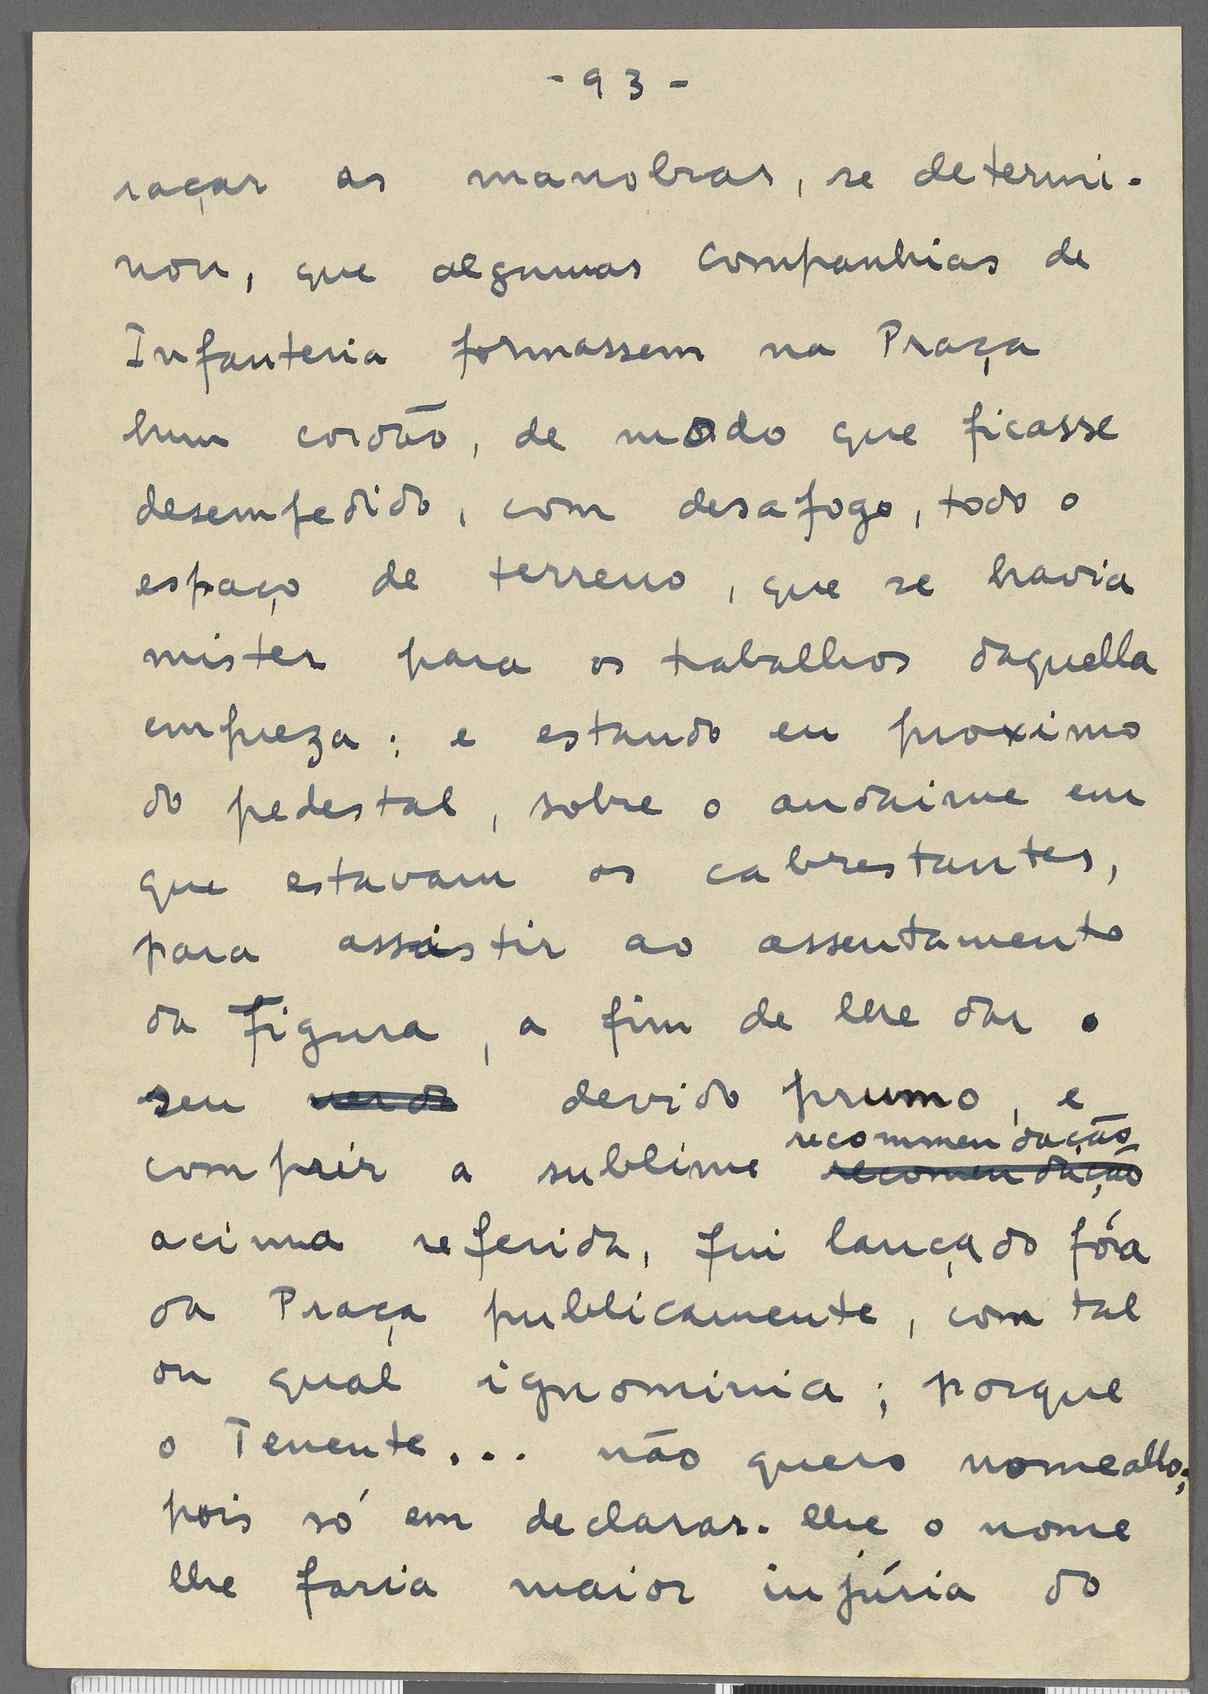 - 93 -
raçar as manobras, se determi-
nou, que algumas companhias de
Infanteria formassem na Praça
hum cordão, de modo que ficasse
desempedido, com desafogo, todo o
espaço de terreno, que se havia
mister para os trabalhos daquella
empreza; e estando eu proximo
do pedestal, sobre o andaime em
que estavam os cabrestantes,
para assistir ao assentamento
da Figura, a fim de lhe dar o
seu devido prumo, e
recommendação
comprir a sublime recomendação
acima referida, fui lançado fóra
da Praça publicamente, com tal
ou qual ignominia; porque
o Tenente... não quero nomeallo;
pois só em declarar-lhe o nome
lhe faria maior injúria do